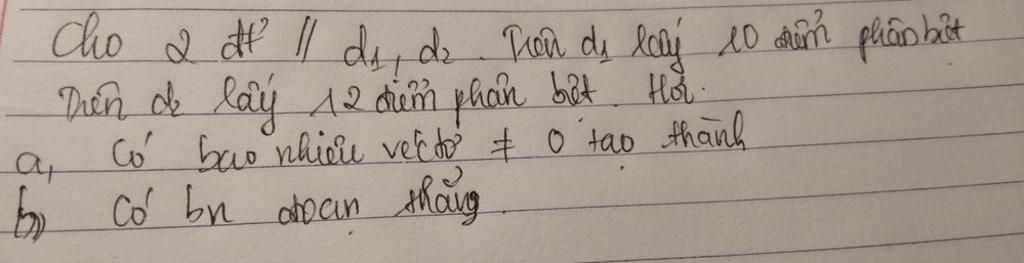 Cho 2 đt² // d1, d2. Trên d1 lấy 10 điểm phân biệt
Trên d2 lấy 12 điểm phân biệt. Hỏi.
a, Có bao nhiêu vectơ ≠ 0 tạo thành
b) Có bn đoạn thẳng.